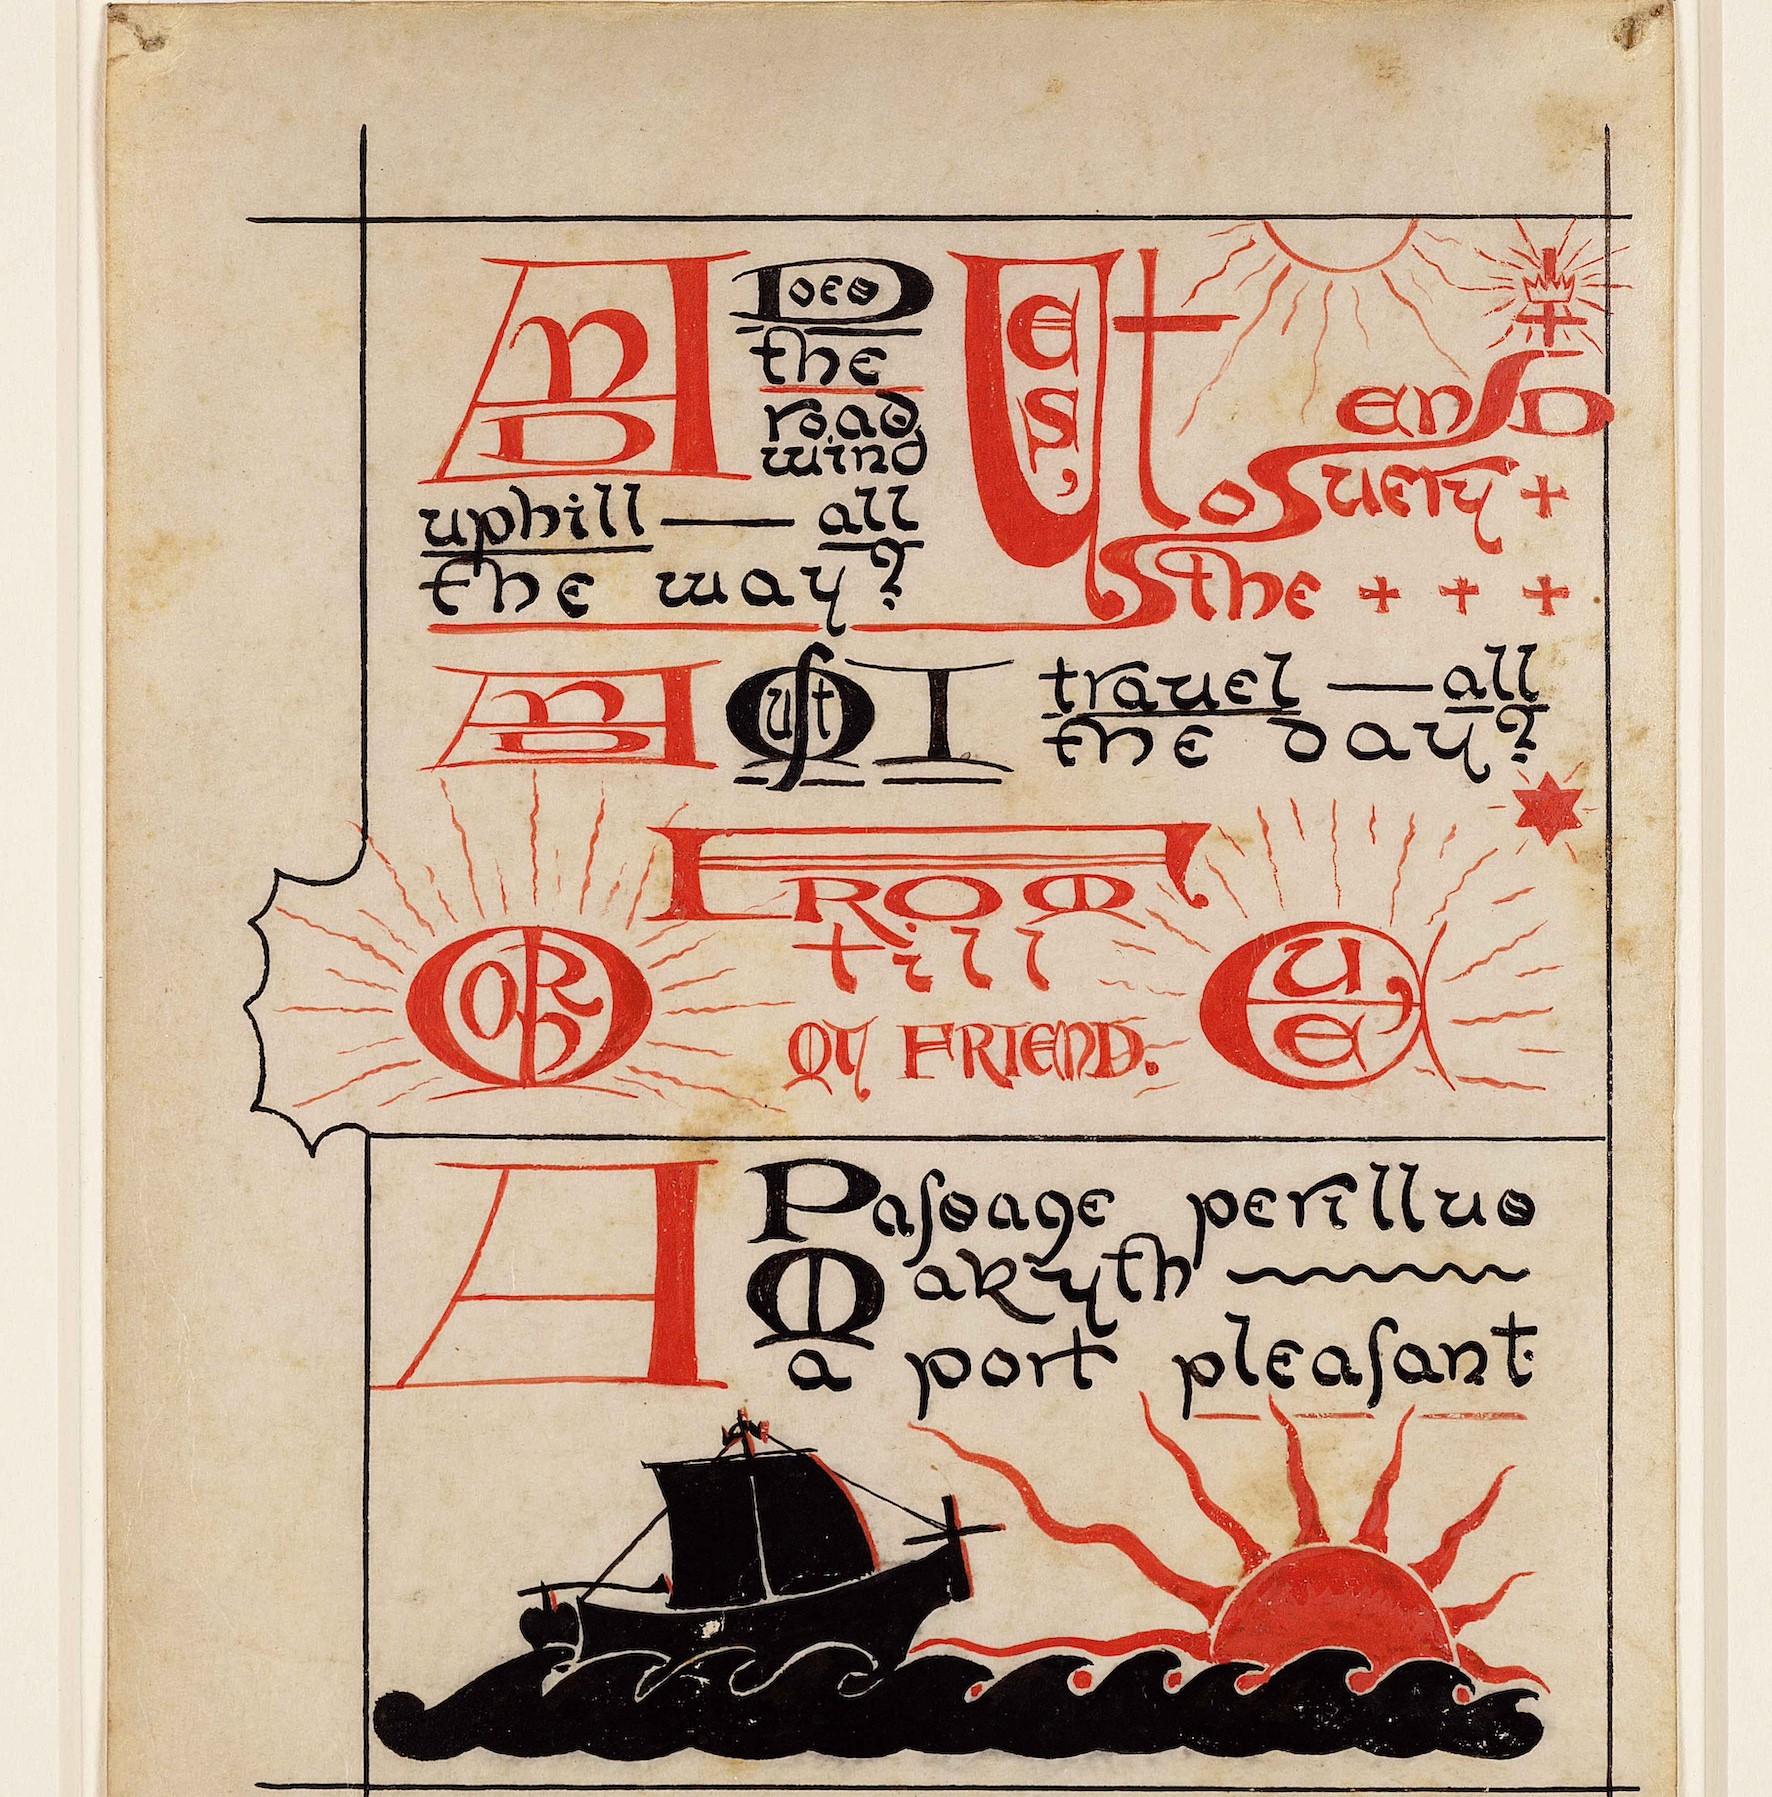 AND Does
the
road
wind
uphill — all
the way?
Yes, to
the
uery
enD
AND Must I trauel — all
the day?
FROM
MORN
till
EuE,
MY FRIEND.
A Paſsage perillus
Makyth
a port pleaſant